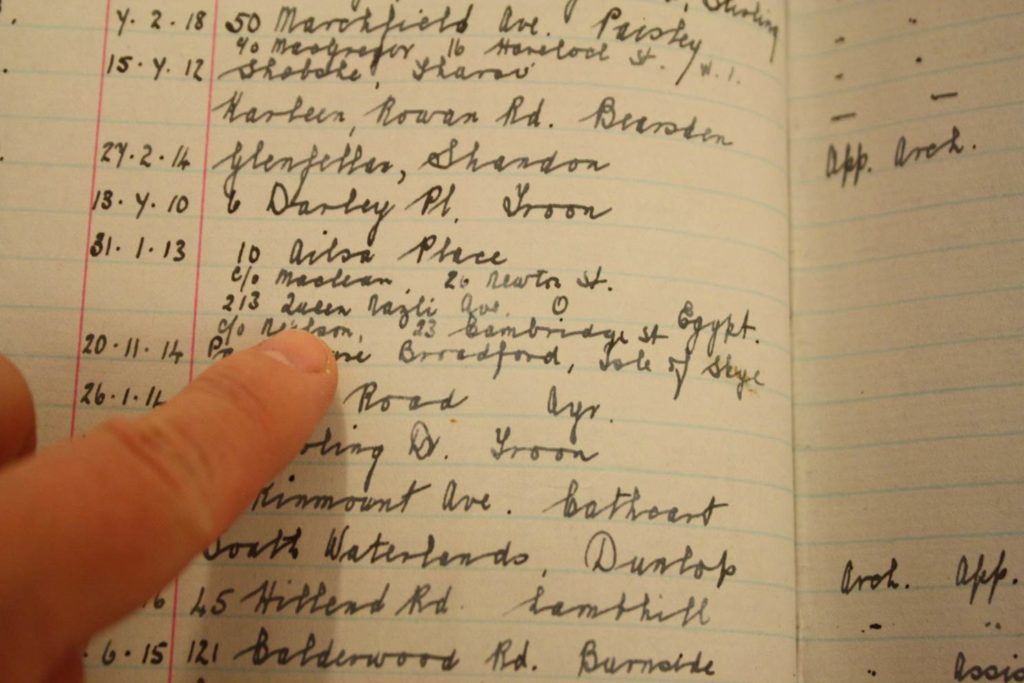 Stirling
7. 2. 18 50 Marchfield Ave. Paisley
c/o MacGregor 16 Havelock St. W.1.
15. 7. 12 Shobske, Sharai
Karleen, Rowan Rd. Bearsden
27. 2. 14 Glenfellar, Shandon App. Arch.
13. 7. 10 6 Darley Pl. Troon
31. 1. 13 10 Ailsa Place
c/o Maclean, 26 Newton St.
213 Queen Nazli Ave. Egypt.
c/o 23 Cambridge St
20. 11. 14 Broadford, Isle of Skye
26. 1. Road Ayr.
Dr. Troon
Kinmount Ave. Cathcart
South Waterlands, Dunlop Arch. App.
16 45 Hillend Rd. Lambhill
6. 15 121 Calderwood Rd. Burnside